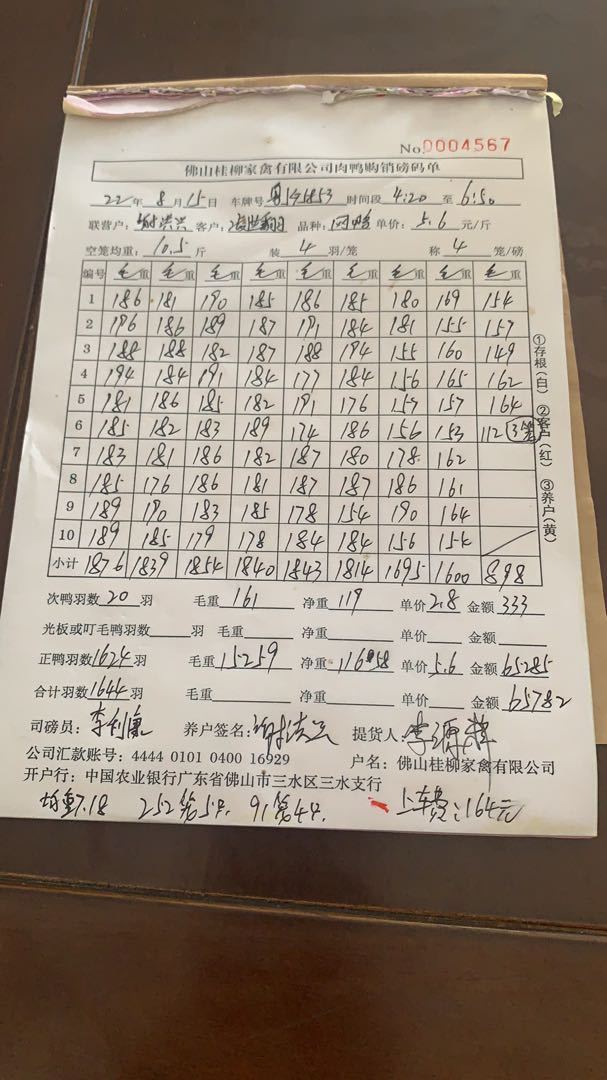 No.0004567
佛山桂柳家禽有限公司肉鸭购销磅码单
22年8月15日 车牌号 时间段4:20至6:50
联营户: 谢洪兴 客户: 品种: 单价:5.6元/斤
空笼均重:10.5斤 装4羽/笼 称4笼/磅
编号 毛重 毛重 毛重 毛重 毛重 毛重 毛重 毛重 毛重
1 186 181 190 185 186 185 180 169 154
2 196 186 189 187 191 184 181 155 157
3 188 188 182 187 188 194 155 160 149
4 194 184 191 184 177 184 156 165 162
5 181 186 185 182 191 176 157 157 164
6 185 182 183 189 174 186 156 153 112 3笼
7 183 181 186 182 187 180 178 162
8 185 176 186 181 187 187 186 161
9 189 190 183 185 178 154 190 164
10 189 185 179 178 184 184 156 154
小计 1876 1839 1854 1840 1843 1814 1695 1600 898
①存根(白) ②客户(红) ③养户(黄)
次鸭羽数20羽 毛重161 净重119 单价2.8 金额333
光板或叮毛鸭羽数 羽 毛重 净重 单价 金额
正鸭羽数1624羽 毛重15259 净重11658 单价5.6 金额65285
合计羽数1644羽 毛重 净重 单价 金额65782
司磅员: 养户签名: 谢洪兴 提货人: 李源辉
公司汇款账号: 4444 0101 0400 16929 户名: 佛山桂柳家禽有限公司
开户行: 中国农业银行广东省佛山市三水区三水支行
均重7.18 252笼5只 91笼4只 上车费:164元